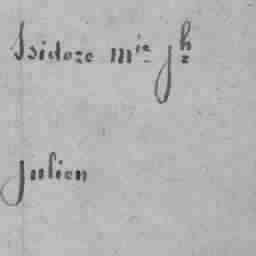 Isidore mie jh
julien